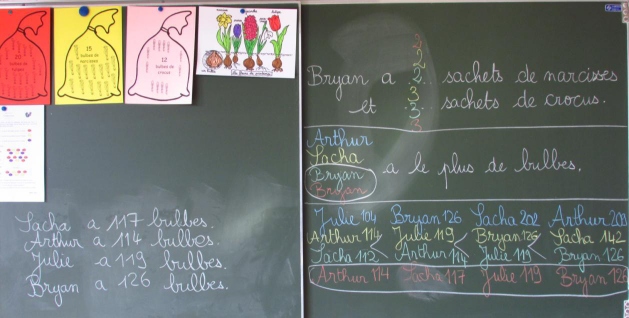 20
bulbes
15
bulbes de
narcisses
12
bulbes de
crocus
Sacha a 117 bulbes.
Arthur a 114 bulbes.
Julie a 119 bulbes.
Bryan a 126 bulbes.
2
2
Bryan a 2 sachets de narcisses
3
et 3 sachets de crocus.
3
Arthur
Sacha
Bryan
Bryan
a le plus de bulbes.
Julie 104 Bryan 126 Sacha 202 Arthur 203
Arthur 114 Julie 119 < Bryan 126 Sacha 142
Sacha 112 < Arthur 114 Julie 119 < Bryan 126
Arthur 114 Sacha 117 Julie 119 Bryan 126